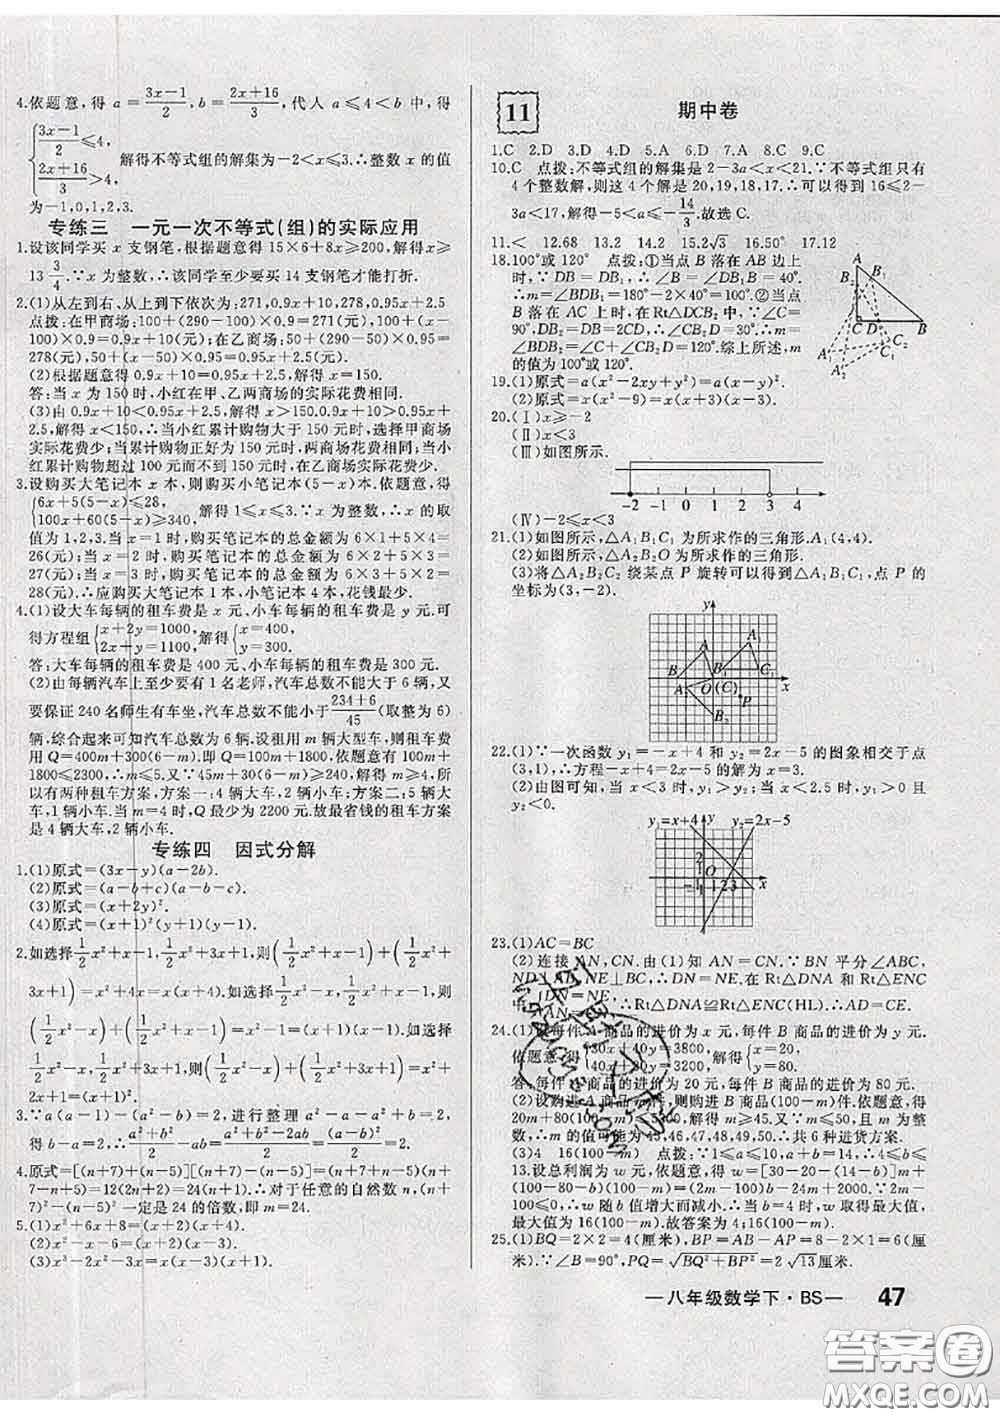 4.依题意，得 a=(3x-1)/2,b=(2x+16)/3,代入 a≤4<b 中，得
{(3x-1)/2≤4,
(2x+16)/3>4, 解得不等式组的解集为-2<x≤3.∴整数 x 的值
为-1,0,1,2,3.
专练三 一元一次不等式(组)的实际应用
1.设该同学买 x 支钢笔,根据题意得 15×6+8x≥200,解得 x≥
13 3/4.∵x 为整数,∴该同学至少要买 14 支钢笔才能打折.
2.(1)从左到右、从上到下依次为:271,0.9x+10,278,0.95x+2.5
点拨:在甲商场:100+(290-100)×0.9=271(元),100+(x-
100)×0.9=0.9x+10(元);在乙商场:50+(290-50)×0.95=
278(元),50+(x-50)×0.95=0.95x+2.5(元).
(2)根据题意得 0.9x+10=0.95x+2.5,解得 x=150.
答:当 x 为 150 时,小红在甲、乙两商场的实际花费相同.
(3)由 0.9x+10<0.95x+2.5,解得 x>150.0.9x+10>0.95x+
2.5,解得 x<150,∴当小红累计购物大于 150 元时,选择甲商场
实际花费少;当累计购物正好为 150 元时,两商场花费相同;当小
红累计购物超过 100 元而不到 150 元时,在乙商场实际花费少.
3.设购买大笔记本 x 本,则购买小笔记本(5-x)本.依题意,得
{6x+5(5-x)≤28,
100x+60(5-x)≥340, 解得 1≤x≤3.∵x 为整数,∴x 的取值
为 1,2,3.当 x=1 时,购买笔记本的总金额为 6×1+5×4=
26(元);当 x=2 时,购买笔记本的总金额为 6×2+5×3=
27(元);当 x=3 时,购买笔记本的总金额为 6×3+5×2=
28(元).∴应购买大笔记本 1 本,小笔记本 4 本,花钱最少.
4.(1)设大车每辆的租车费是 x 元、小车每辆的租车费是 y 元.可
得方程组{x+2y=1000,
2x+y=1100, 解得{x=400,
y=300.
答:大车每辆的租车费是 400 元、小车每辆的租车费是 300 元.
(2)由每辆汽车上至少要有 1 名老师,汽车总数不能大于 6 辆,又
要保证 240 名师生有车坐,汽车总数不能小于(234+6)/45(取整为 6)
辆,综合起来可知汽车总数为 6 辆.设租用 m 辆大型车,则租车费
用 Q=400m+300(6-m)=100m+1800,依题意有 100m+
1800≤2300,∴m≤5.又∵45m+30(6-m)≥240,解得 m≥4,所
以有两种租车方案,方案一:4 辆大车,2 辆小车;方案二:5 辆大
车,1 辆小车.当 m=4 时,Q 最少为 2200 元.故最省钱的租车方案
是 4 辆大车,2 辆小车.
专练四 因式分解
1.(1)原式=(3x-y)(a-2b).
(2)原式=(a-b+c)(a-b-c).
(3)原式=(x+2y)².
(4)原式=(x+1)²(y+1)(y-1).
2.如选择 1/2x²+x-1,1/2x²+3x+1,则(1/2x²+x-1)+(1/2x²+
3x+1)=x²+4x=x(x+4).如选择 1/2x²-x,1/2x²+x-1,则
(1/2x²-x)+(1/2x²+x-1)=x²-1=(x+1)(x-1).如选择
1/2x²-x,1/2x²+3x+1,则(1/2x²-x)+(1/2x²+3x+1)=x²
+2x+1=(x+1)².
3.∵a(a-1)-(a²-b)=2,进行整理 a²-a-a²+b=2,
得 b-a=2,∴(a²+b²)/2-ab=(a²+b²-2ab)/2=(a-b)²/2=2.
4.原式=[(n+7)+(n-5)][(n+7)-(n-5)]=(n+7+n-5)(n
+7-n+5)=(2n+2)×12=24(n+1).∴对于任意的自然数 n,(n
+7)²-(n-5)²一定是 24 的倍数,即 m=24.
5.(1)x²+6x+8=(x+2)(x+4).
(2)x²-x-6=(x-3)(x+2).
(3)x³-2x²-3x=x(x-3)(x+1).
11 期中卷
1.C 2.D 3.D 4.D 5.A 6.D 7.A 8.C 9.C
10.C 点拨:不等式组的解集是 2-3a<x<21.∵不等式组只有
4 个整数解,则这 4 个解是 20,19,18,17.∴可以得到 16≤2-
3a<17,解得-5<a≤-14/3.故选 C.
11.< 12.68 13.2 14.2 15.2√3 16.50° 17.12
18.100°或 120° 点拨:①当点 B 落在 AB 边上
时,∵DB=DB₁,∴∠B=∠DB₁B=40°.
∴m=∠BDB₁=180°-2×40°=100°.②当点
B 落在 AC 上时,在 Rt△DCB₂ 中,∵∠C=
90°,DB₂=DB=2CD,∴∠CB₂D=30°.∴m
=∠C+∠CB₂D=120°.综上所述,m
的值为 100°或 120°.
A B₁ B₂ C D B A₁ A₂ C₁ C₂
19.(1)原式=a(x²-2xy+y²)=a(x-y)².
(2)原式=x(x²-9)=x(x+3)(x-3).
20.(Ⅰ)x≥-2
(Ⅱ)x<3
(Ⅲ)如图所示.
-2 -1 0 1 2 3 4
(Ⅳ)-2≤x<3
21.(1)如图所示,△A₁B₁C₁ 为所求作的三角形.A₁(4,4).
(2)如图所示,△A₂B₂O 为所求作的三角形.
(3)将△A₂B₂C₂ 绕某点 P 旋转可以得到△A₁B₁C₁,点 P 的
坐标为(3,-2).
y A A₁ B B₁ C₁ A₂ O (C) P B₂ x
22.(1)∵一次函数 y₁=-x+4 和 y₂=2x-5 的图象相交于点
(3,1),∴方程-x+4=2x-5 的解为 x=3.
(2)由图可知,当 x<3 时,y₁>y₂;当 x<3 时,y₁>0 且
y₂<0.
y₁=x+4 y y₂=2x-5
2 1 O -1 1 2 3 x
23.(1)AC=BC
(2)连接 AN,CN.由(1)知 AN=CN.∵BN 平分∠ABC,
ND⊥AD,NE⊥BC,∴DN=NE.在 Rt△DNA 和 Rt△ENC
中,DN=NE,∴Rt△DNA≌Rt△ENC(HL).∴AD=CE.
24.(1)设每件 A 商品的进价为 x 元,每件 B 商品的进价为 y 元.
依题意,得{30x+40y=3800,
40x+30y=3200, 解得{x=20,
y=80.
答:每件 A 商品的进价为 20 元,每件 B 商品的进价为 80 元.
(2)设购进 A 商品 m 件,则购进 B 商品(100-m)件.依题意,得
20m+80(100-m)≤5300,解得 m≥45.又∵m≤50,且 m 为整
数,∴m 的值可能为 45,46,47,48,49,50.∴共 6 种进货方案.
(3)4 16(100-m) 点拨:∵1≤a≤10,a+b=14,∴4≤b≤
13.设总利润为 w 元,依题意,得 w=[30-20-(14-b)]m+
(100-80-b)(100-m)=(2m-100)b-24m+2000.∵2m-
100≤0,∴w 随 b 值增大而减小.∴当 b=4 时,w 取得最大值,
最大值为 16(100-m).故答案为 4;16(100-m).
25.(1)BQ=2×2=4(厘米),BP=AB-AP=8-2×1=6(厘
米).∵∠B=90°,PQ=√(BQ²+BP²)=2√13(厘米).
—八年级数学下·BS— 47
答案圈
MXQE.COM